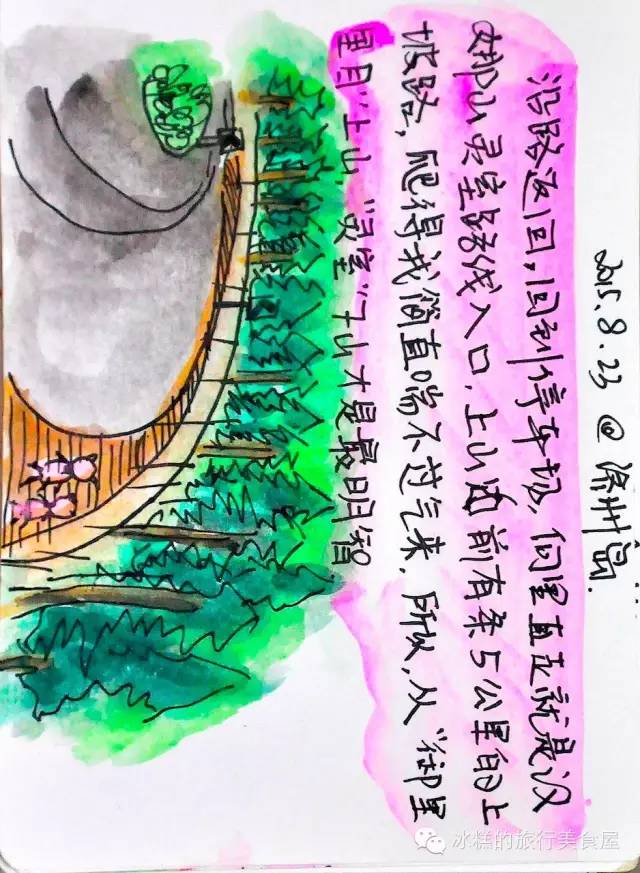 2015.8.23 @ 济州岛.
沿路返回,回到停车场,向里直走就是汉
拿山灵室路线入口,上山前有条5公里的上
坡路,爬得我简直喘不过气来,所以,从“御里
里目”上山,“灵室”下山才是最明智
冰糕的旅行美食屋